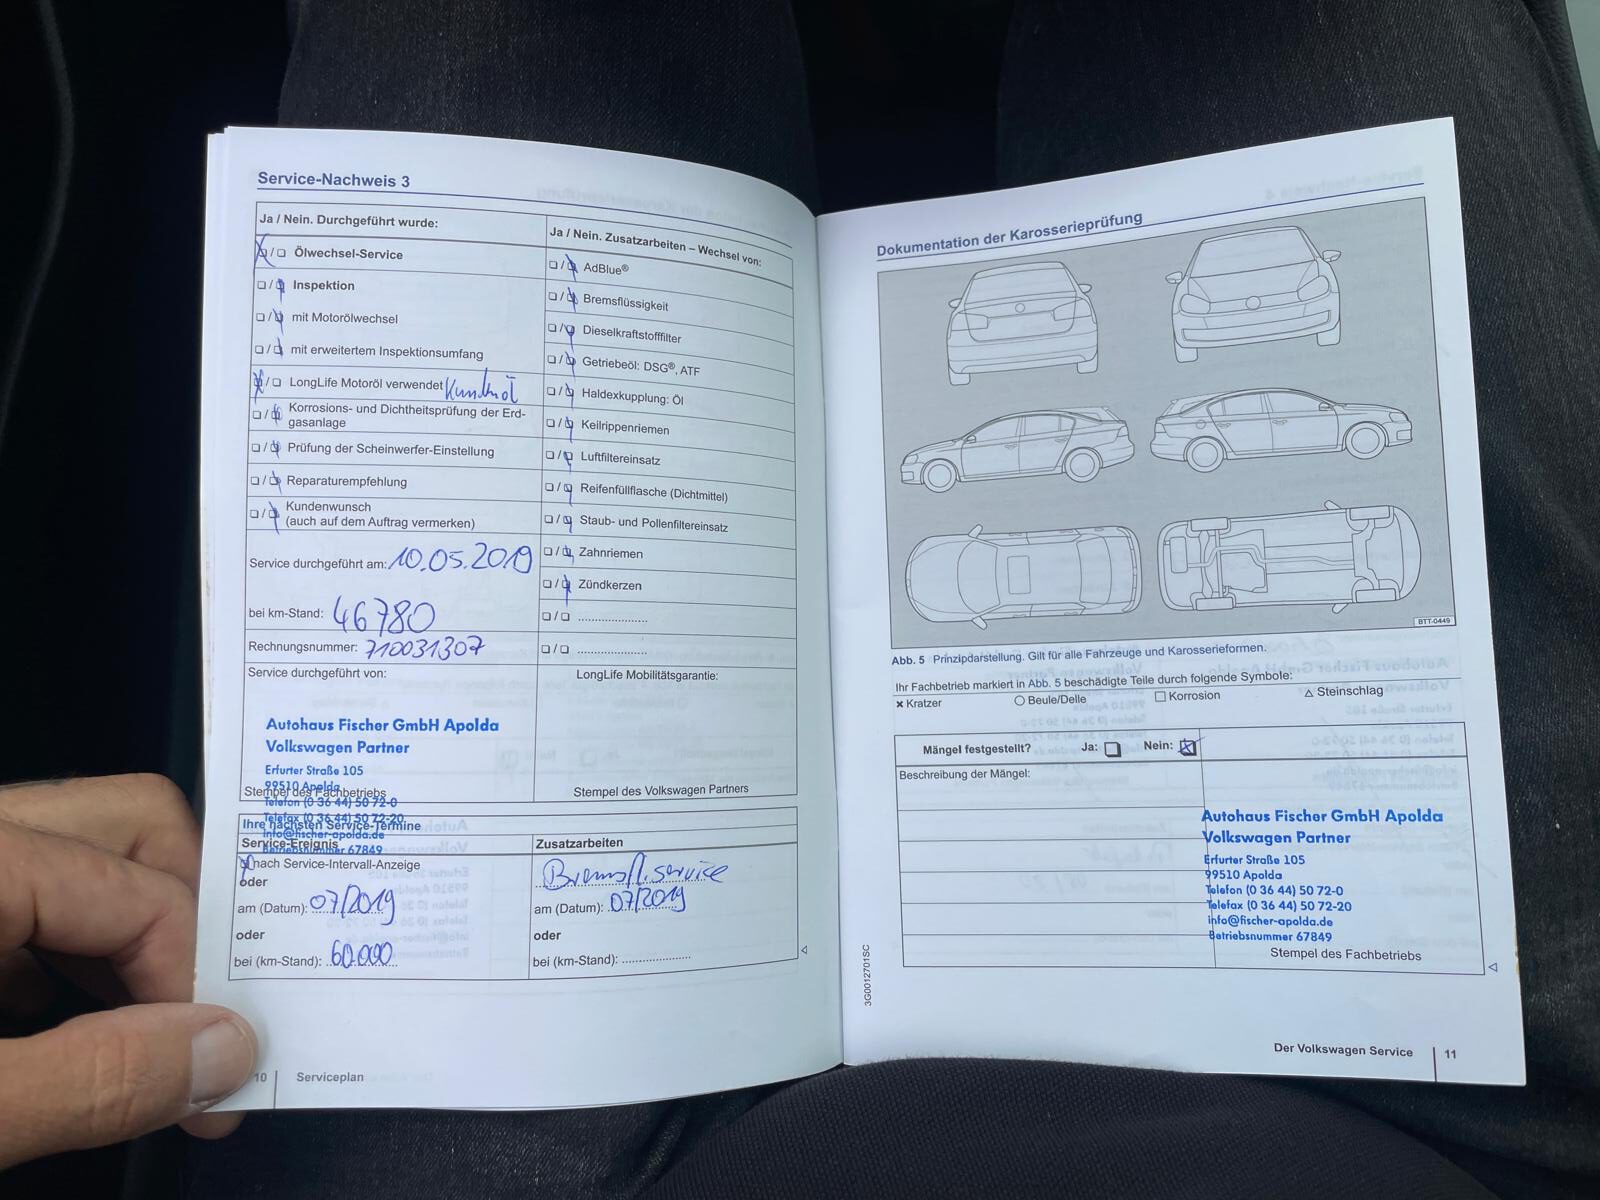 Service-Nachweis 3
Ja / Nein. Durchgeführt wurde:
Ölwechsel-Service
Inspektion
mit Motorölwechsel
mit erweitertem Inspektionsumfang
LongLife Motoröl verwendet Kundenöl
Korrosions- und Dichtheitsprüfung der Erd-
gasanlage
Prüfung der Scheinwerfer-Einstellung
Reparaturempfehlung
Kundenwunsch
(auch auf dem Auftrag vermerken)
Service durchgeführt am: 10.05.2019
bei km-Stand: 46780
Rechnungsnummer: 710031307
Service durchgeführt von:
Autohaus Fischer GmbH Apolda
Volkswagen Partner
Erfurter Straße 105
99510 Apolda
Stempel des Fachbetriebs
Telefon (0 36 44) 50 72-0
Telefax (0 36 44) 50 72-20
info@fischer-apolda.de
Betriebsnummer 67849
Ja / Nein. Zusatzarbeiten – Wechsel von:
AdBlue®
Bremsflüssigkeit
Dieselkraftstofffilter
Getriebeöl: DSG®, ATF
Haldexkupplung: Öl
Keilrippenriemen
Luftfiltereinsatz
Reifenfüllflasche (Dichtmittel)
Staub- und Pollenfiltereinsatz
Zahnriemen
Zündkerzen
LongLife Mobilitätsgarantie:
Stempel des Volkswagen Partners
Ihre nächsten Service-Termine
Service-Ereignis
nach Service-Intervall-Anzeige
oder
am (Datum): 07/2019
oder
bei (km-Stand): 60.000
Zusatzarbeiten
Bremsfl.service
am (Datum): 07/2019
oder
bei (km-Stand):
10 Serviceplan
Dokumentation der Karosserieprüfung
BTT-0449
Abb. 5 Prinzipdarstellung. Gilt für alle Fahrzeuge und Karosserieformen.
Ihr Fachbetrieb markiert in Abb. 5 beschädigte Teile durch folgende Symbole:
Kratzer Beule/Delle Korrosion Steinschlag
Mängel festgestellt? Ja: Nein:
Beschreibung der Mängel:
Autohaus Fischer GmbH Apolda
Volkswagen Partner
Erfurter Straße 105
99510 Apolda
Telefon (0 36 44) 50 72-0
Telefax (0 36 44) 50 72-20
info@fischer-apolda.de
Betriebsnummer 67849
Stempel des Fachbetriebs
3G0012701SC
Der Volkswagen Service 11